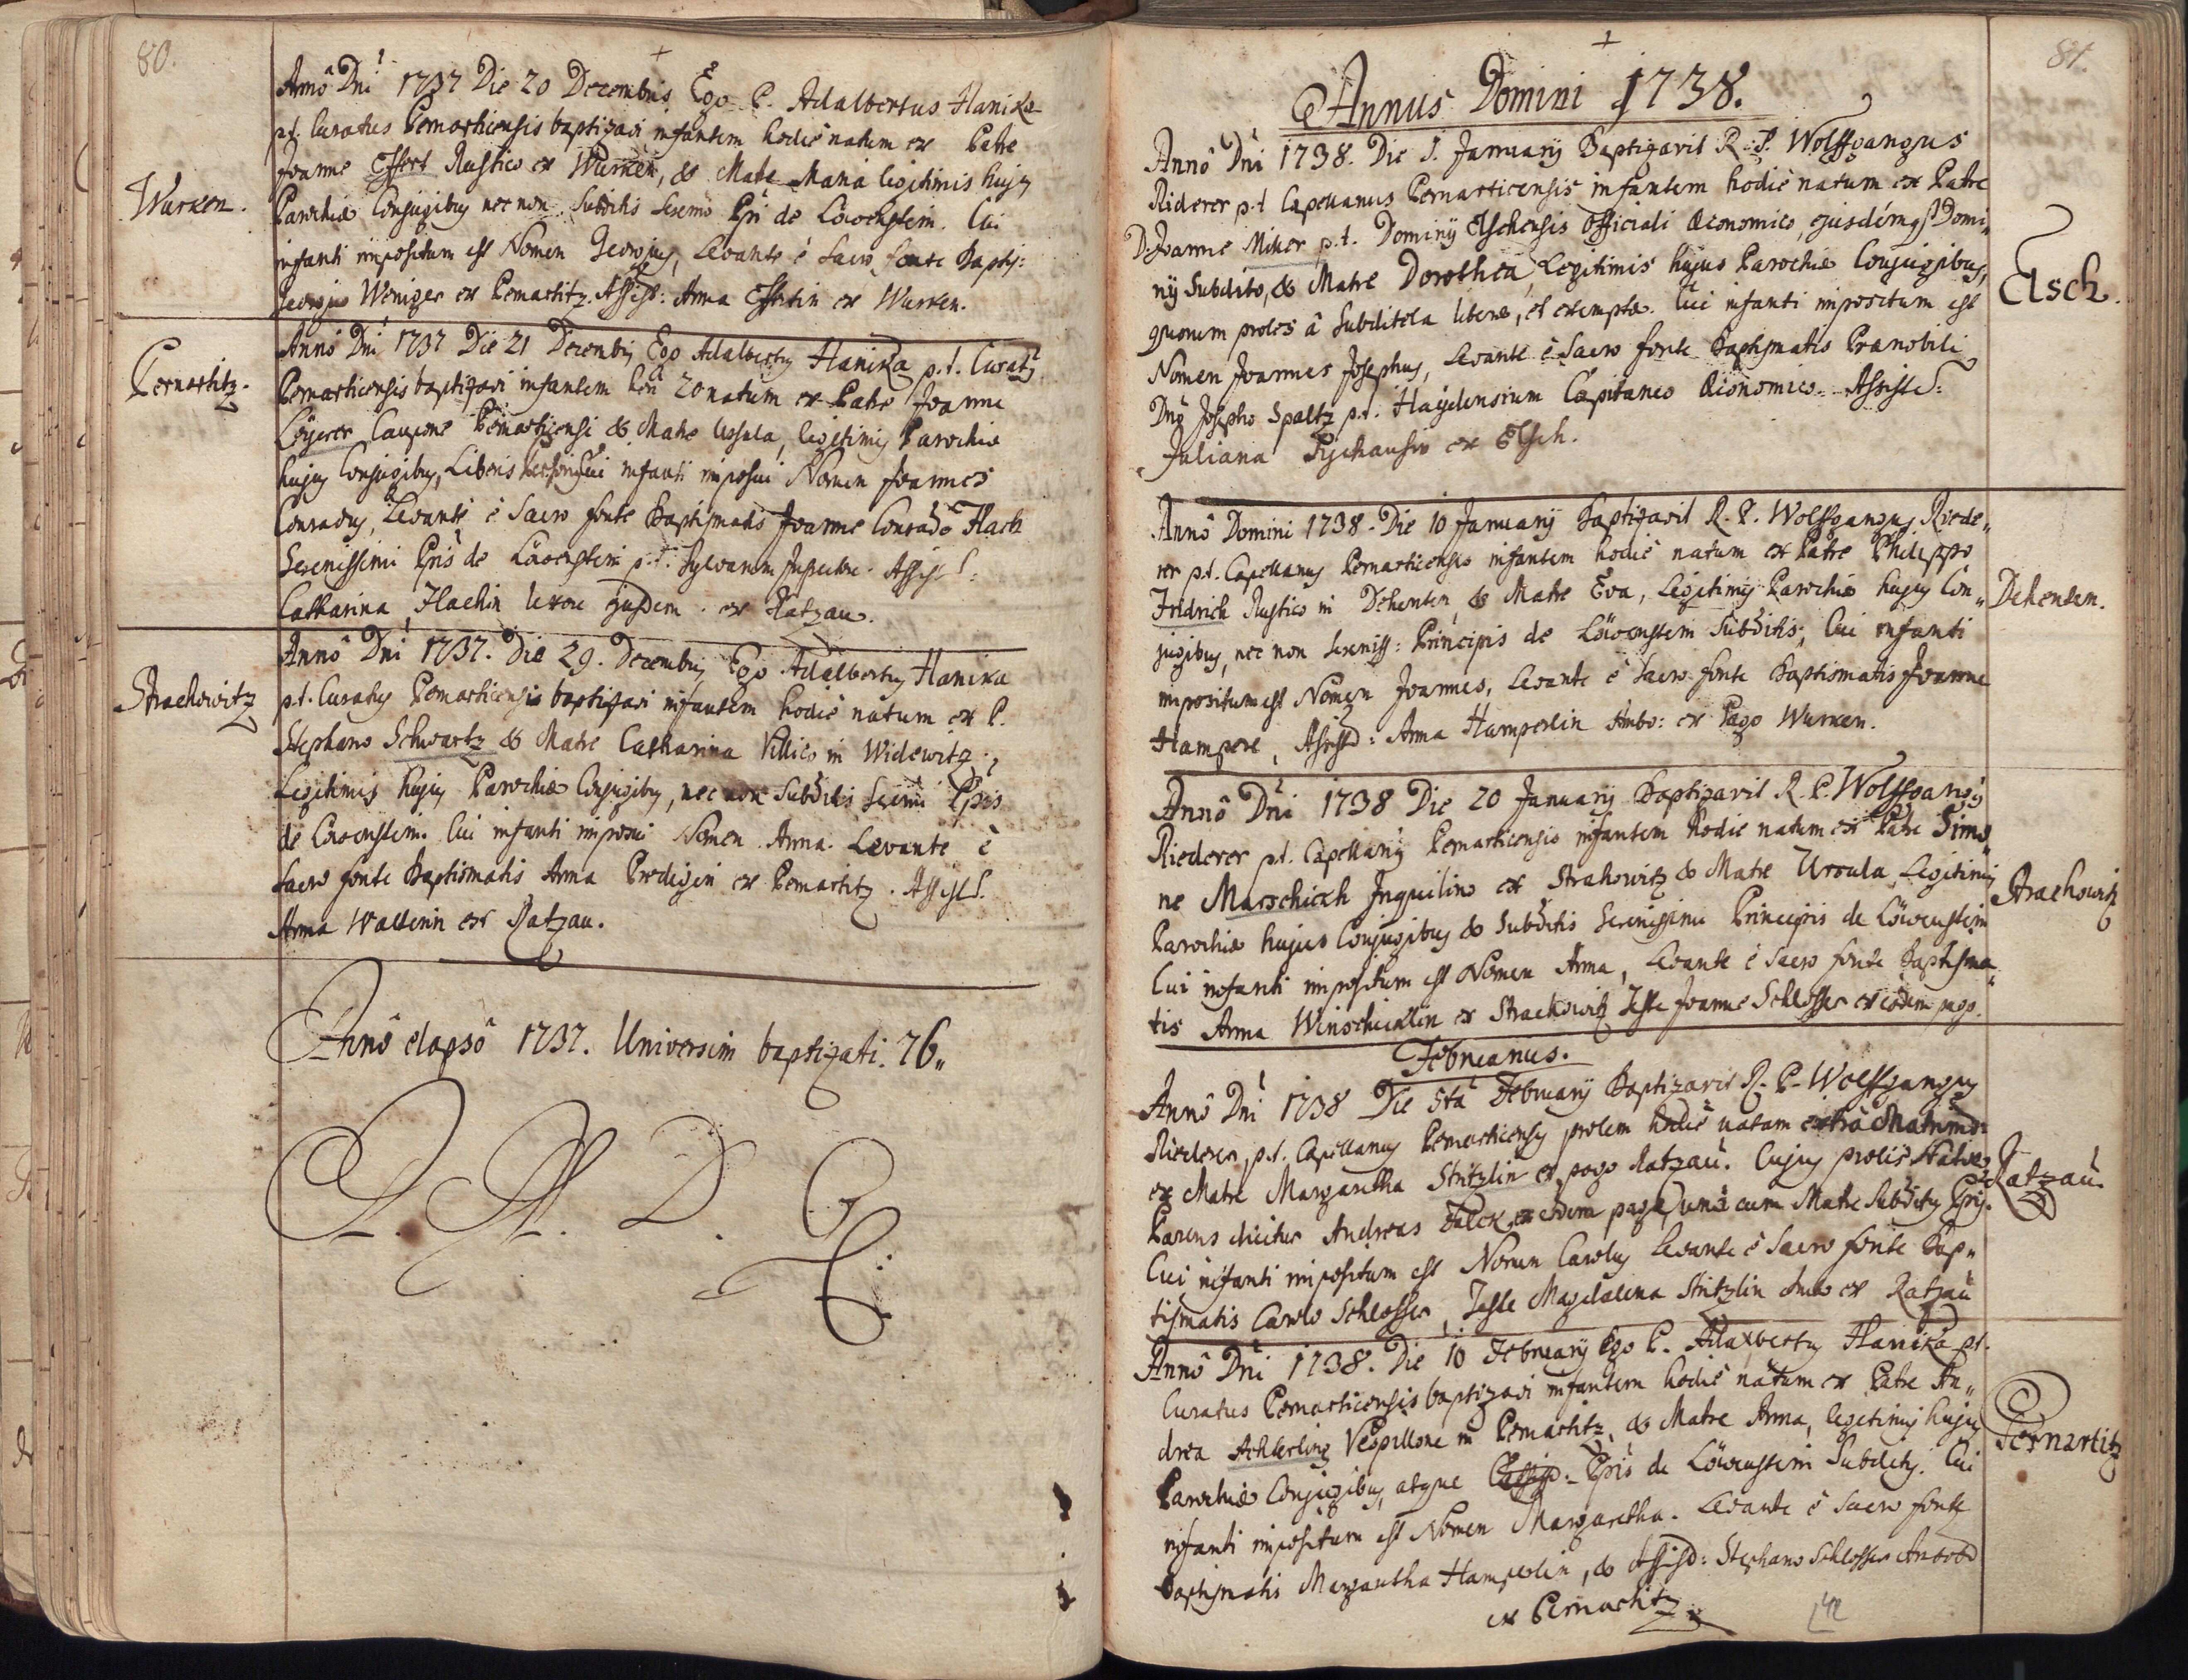 80.
Annô Dni 1737 Die 20 Decembris Ego P. Adalbertus Hanika
p.t. Curatus Pernarticensis baptizavi infantem hodiè natum ex Patre
Joanne Effert Rustico ex Wurken, & Matre Maria legitimis hujus
Wurken.
Parochiæ Conjugibus nec non Subditis Seremi Pri de Löwenstein. Cui
infanti impositum est Nomen Georgius, Levante è Sacro fonte Baptis:
Georgio Weniger ex Pernartitz. Assist: Anna Effertin ex Wurken.
Annô Dni 1737 Die 21 Decembris Ego Adalbertus Hanika p.t. Curatus
Pernartitz.
Pernarticensis baptizavi infantem heri 20 natum ex Patre Joanne
Löyerer Caupone Pernarticensi & Matre Ursula, legitimis Parochiæ
hujus Conjugibus, Liberis Personis, Cui infanti imposui Nomen Joannes
Conradus, Levante è Sacro fonte Baptismatis Joanne Conrado Hach
Serenissimi Pris de Löwenstein p.t. Sylvarum Inspectore. Assist:
Catharina Hachin Uxore ejusdem ex Ratzau.
Annô Dni 1737. Die 29. Decembris Ego Adalbertus Hanika
Strachowitz
p.t. Curatus Pernarticensis baptizavi infantem hodiè natum ex P.
Stephano Schwartz & Matre Catharina Villico in Widewitz,
Legitimis hujus Parochiæ Conjugibus, nec non Subditis Seremi Pris
de Löwenstein. Cui infanti imposui Nomen Anna. Levante è
Sacro fonte Baptismatis Anna Predigin ex Pernartitz. Assist.
Anna Wallerin ex Ratzau.
Annô elapsô 1737. Universim baptizati. 76.
81.
Annus Domini 1738.
Annô Dni 1738. Die 1. January Baptizavit R. P. Wolffgangus
Riderer p.t. Capellanus Pernarticensis infantem hodiè natum ex Patre
D. Joanne Miker p.t. Dominy Elschensis Officiali Œconomico, ejusdémq Domi„
ny Subdito, & Matre Dorothea, Legitimis hujus Parochiæ Conjugibus,
Elsch.
quorum proles â Subditela libera, et exempta. Cui infanti impositum est
Nomen Joannes Josephus, Levante è Sacro fonte Baptismatis Prænobili
Dno Josepho Spaltz p.t. Haydensium Capitaneo Œconomico. Assiste:
Juliana ex Elsch.
Annô Domini 1738. Die 10 January Baptizavit R. P. Wolffgangus Riede„
rer p.t. Capellanus Pernarticensis infantem hodiè natum ex Patre Philippo
Fridrich Rustico in Dehenten, & Matre Eva, Legitimis Parochiæ hujus Con„
Dehenten.
jugibus, nec non Sereniss: Principis de Löwenstein Subditis, Cui infanti
impositum est Nomen Joannes, Levante è Sacro fonte Baptismatis Joanne
Hamperl, Assistd: Anna Hamperlin Ambo: ex Pago Wurken.
Annô Dni 1738 Die 20 January Baptizavit R. P. Wolffgangus
Riederer p.t. Capellanus Pernarticensis infantem hodiè natum ex Patre Simo„
ne Marschickh Inquilino ex Strahowitz & Matre Ursula Legitimis
Strachowitz
Parochiæ hujus Conjugibus & Subditis Serenissimi Principis de Löwenstein
Cui infanti impositum est Nomen Anna, Levante è Sacro fonte Baptisma„
tis Anna Winschicklin ex Strachowitz Teste Joanne Schlosser ex eodem pago.
Februarius.
Annô Dni 1738 Die 5ta February Baptizavit R. P. Wolffgangus
Riederer, p.t. Capellanus Pernarticensis prolem hodiè natam extra Matrimo:
ex Matre Margaretha Stritzlin ex pago Ratzau. Cujus prolis
Ratzau.
Parens dicitur Andreas ex eodem pago, unà cum Matre Subditus Pris.
Cui infanti impositum est Nomen Carolus Levante è Sacro fonte Bap„
tismatis Carolo Schlosser, Teste Magdalena Stritzlin ambo ex Ratzau
Annô Dni 1738. Die 10 February Ego P. Adalbertus Hanika p.t.
Curatus Pernarticensis baptizavi infantem hodiè natum ex Patre An„
drea Achterling Vespillone in Pernartitz, & Matre Anna, legitimis hujus
Pernartitz
Parochiæ Conjugibus, atque Pris de Löwenstein Subditis. Cui
infanti impositum est Nomen Margaretha. Levante è Sacro fonte
Baptismatis Margaretha Hamperlin, & Assistd: Stephano Schlosser Ambobus
ex Pernartitz.